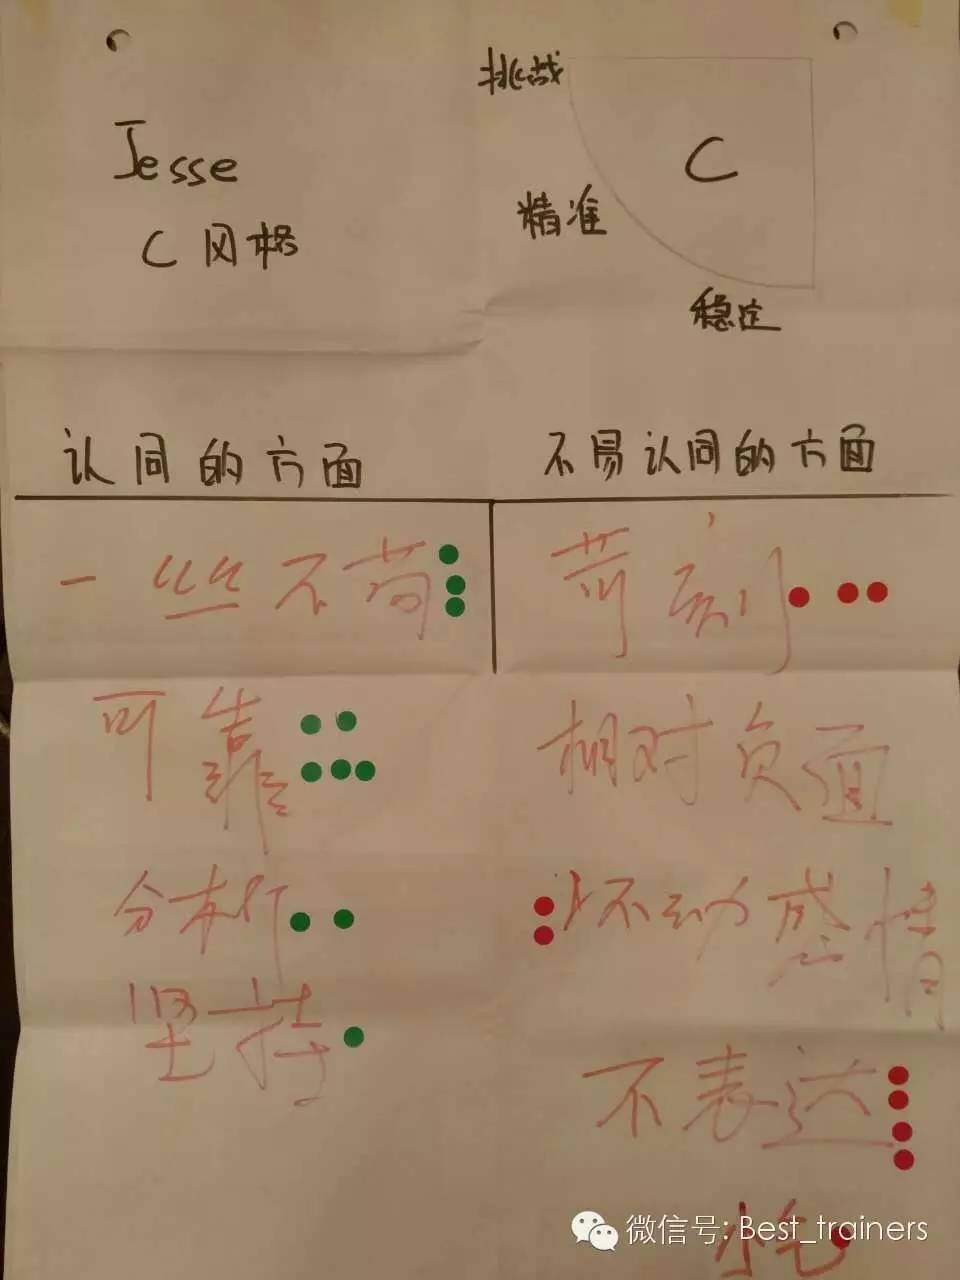 Jesse
C 风格
挑战
C
精准
稳定
认同的方面
不易认同的方面
一丝不苟
苛刻
可靠
相对负面
分析
不动感情
坚持
不表达
小气
微信号: Best_trainers